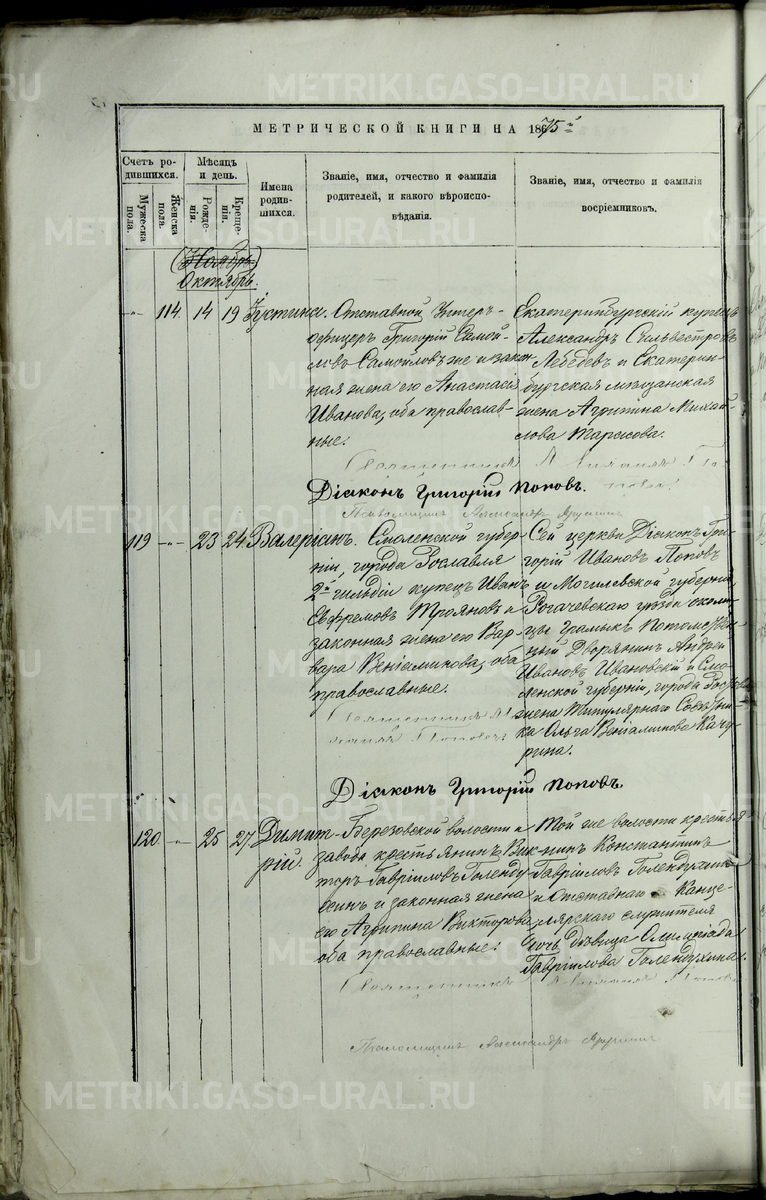 METRIKI.GASO-URAL.RU
МЕТРИЧЕСКОЙ КНИГИ НА 1875й
Счетъ родившихся.
Мужеска пола.
Женска пола.
Мѣсяцъ и день.
Рожденія.
Крещенія.
Имена родившихся.
Званіе, имя, отчество и фамилія родителей, и какого вѣроисповѣданія.
Званіе, имя, отчество и фамилія восріемниковъ.
(Ноябрь)
Октябрь.
-"- 114. 14 19 Іустина.
Отставной Унтеръ-
офицеръ Григорій Самой-
ловъ Самойловъ же и закон
ная жена его Анастасія
Иванова, оба православ-
ные.
Екатеринбургскій купецъ
Александръ Сильвестровъ
Лебедевъ и Екатерин-
бургская мѣщанская
жена Агрипина Михай-
лова Тарасова.
Священникъ
Діаконъ Григорій Поповъ.
Псаломщикъ Александръ
119 -"- 23 24 Валеріанъ.
Смоленской губер
ніи, города Рославля
2й гильдіи купецъ Иванъ
Евфремовъ Трояновъ и
законная жена его Вар-
вара Веніаминова, оба
православные.
Сей церкви Діаконъ Гри-
горій Ивановъ Поповъ
и Могилевской губерніи,
Рогачевскаго уѣзда околи-
цы Грамыкъ Потомствен
ный Дворянинъ Андрей
Ивановъ Ивановскій и Смо-
ленской губерніи, города Рославля
жена Титулярнаго Совѣтни-
ка Ольга Веніаминова Качу-
рина.
Священникъ
Поповъ
Діаконъ Григорій Поповъ.
120. -"- 25 27. Димит-
рій.
Березовской волости и
завода крестьянинъ Вик-
торъ Гавріиловъ Голенду-
хинъ и законная жена
его Агрипина Викторова,
оба православные.
Той же волости крестья-
нинъ Константинъ
Гавріиловъ Голендухинъ
и Отставнаго Канце-
лярскаго служителя
дочь Дѣвица Олимпіада
Гавріилова Голендухина.
Священникъ
Псаломщикъ Александръ